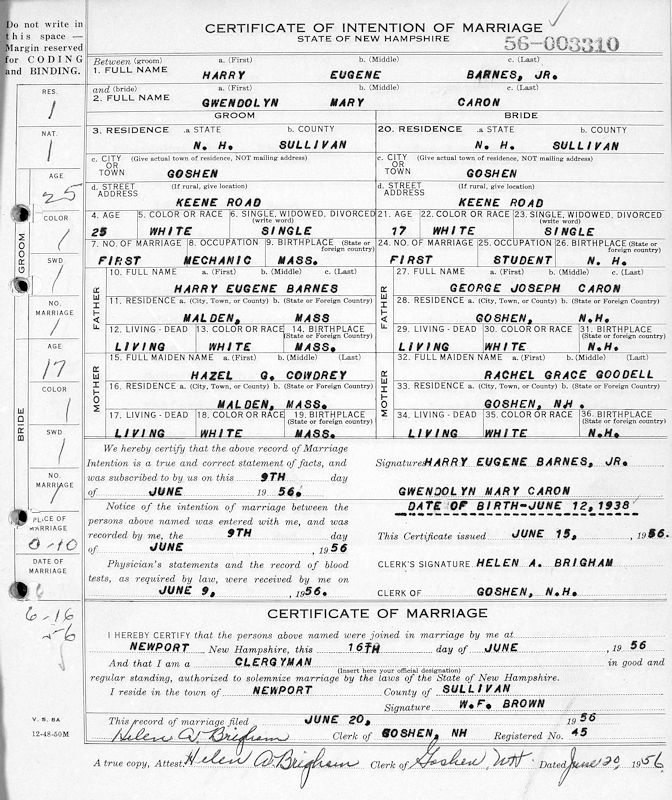 Do not write in
this space —
Margin reserved
for CODING
and BINDING.
CERTIFICATE OF INTENTION OF MARRIAGE
STATE OF NEW HAMPSHIRE
56-003310
Between (groom) a. (First) b. (Middle) c. (Last)
1. FULL NAME HARRY EUGENE BARNES, JR.
and (bride) a. (First) b. (Middle) c. (Last)
2. FULL NAME GWENDOLYN MARY CARON
GROOM BRIDE
3. RESIDENCE .a STATE b. COUNTY 20. RESIDENCE .a STATE b. COUNTY
N. H. SULLIVAN N. H. SULLIVAN
c. CITY OR TOWN (Give actual town of residence, NOT mailing address) c. CITY OR TOWN (Give actual town of residence, NOT mailing address)
GOSHEN GOSHEN
d. STREET ADDRESS (If rural, give location) d. STREET ADDRESS (If rural, give location)
KEENE ROAD KEENE ROAD
4. AGE 5. COLOR OR RACE 6. SINGLE, WIDOWED, DIVORCED (write word) 21. AGE 22. COLOR OR RACE 23. SINGLE, WIDOWED, DIVORCED (write word)
25 WHITE SINGLE 17 WHITE SINGLE
7. NO. OF MARRIAGE 8. OCCUPATION 9. BIRTHPLACE (State or foreign country) 24. NO. OF MARRIAGE 25. OCCUPATION 26. BIRTHPLACE (State or foreign country)
FIRST MECHANIC MASS. FIRST STUDENT N. H.
FATHER 10. FULL NAME a. (First) b. (Middle) c. (Last) FATHER 27. FULL NAME a. (First) b. (Middle) c. (Last)
HARRY EUGENE BARNES GEORGE JOSEPH CARON
11. RESIDENCE a. (City, Town, or County) b. (State or Foreign Country) 28. RESIDENCE a. (City, Town, or County) b. (State or Foreign Country)
MALDEN, MASS GOSHEN, N.H.
12. LIVING - DEAD 13. COLOR OR RACE 14. BIRTHPLACE (State or foreign country) 29. LIVING - DEAD 30. COLOR OR RACE 31. BIRTHPLACE (State or foreign country)
LIVING WHITE MASS. LIVING WHITE N.H.
MOTHER 15. FULL MAIDEN NAME a. (First) b. (Middle) (Last) MOTHER 32. FULL MAIDEN NAME a. (First) b. (Middle) (Last)
HAZEL G. COWDREY RACHEL GRACE GOODELL
16. RESIDENCE a. (City, Town, or County) b. (State or Foreign Country) 33. RESIDENCE a. (City, Town, or County) b. (State or Foreign Country)
MALDEN, MASS. GOSHEN, N.H.
17. LIVING - DEAD 18. COLOR OR RACE 19. BIRTHPLACE (State or foreign country) 34. LIVING - DEAD 35. COLOR OR RACE 36. BIRTHPLACE (State or foreign country)
LIVING WHITE MASS. LIVING WHITE N.H.
We hereby certify that the above record of Marriage
Intention is a true and correct statement of facts, and
was subscribed to by us on this 9TH day
of JUNE 1956.
Notice of the intention of marriage between the
persons above named was entered with me, and was
recorded by me, the 9TH day
of JUNE , 1956
Physician's statements and the record of blood
tests, as required by law, were received by me on
JUNE 9, , 1956.
Signatures HARRY EUGENE BARNES, JR.
GWENDOLYN MARY CARON
DATE OF BIRTH-JUNE 12, 1938
This Certificate issued JUNE 15, , 1956.
CLERK'S SIGNATURE HELEN A. BRIGHAM
CLERK OF GOSHEN, N.H.
CERTIFICATE OF MARRIAGE
I HEREBY CERTIFY that the persons above named were joined in marriage by me at
NEWPORT , New Hampshire, this 16TH day of JUNE , 1956
And that I am a CLERGYMAN in good and
(Insert here your official designation)
regular standing, authorized to solemnize marriage by the laws of the State of New Hampshire.
I reside in the town of NEWPORT County of SULLIVAN
Signature W.F. BROWN
This record of marriage filed JUNE 20, 1956
Helen A. Brigham Clerk of GOSHEN, NH Registered No. 45
A true copy, Attest. Helen A. Brigham Clerk of Goshen, NH Dated June 20, 1956
RES.
1
NAT.
1
GROOM
AGE
25
COLOR
1
SWD
1
NO. MARRIAGE
1
BRIDE
AGE
17
COLOR
1
SWD
1
NO. MARRIAGE
1
PLACE OF MARRIAGE
0-10
DATE OF MARRIAGE
6-16
56
V. S. 8A
12-48-50M